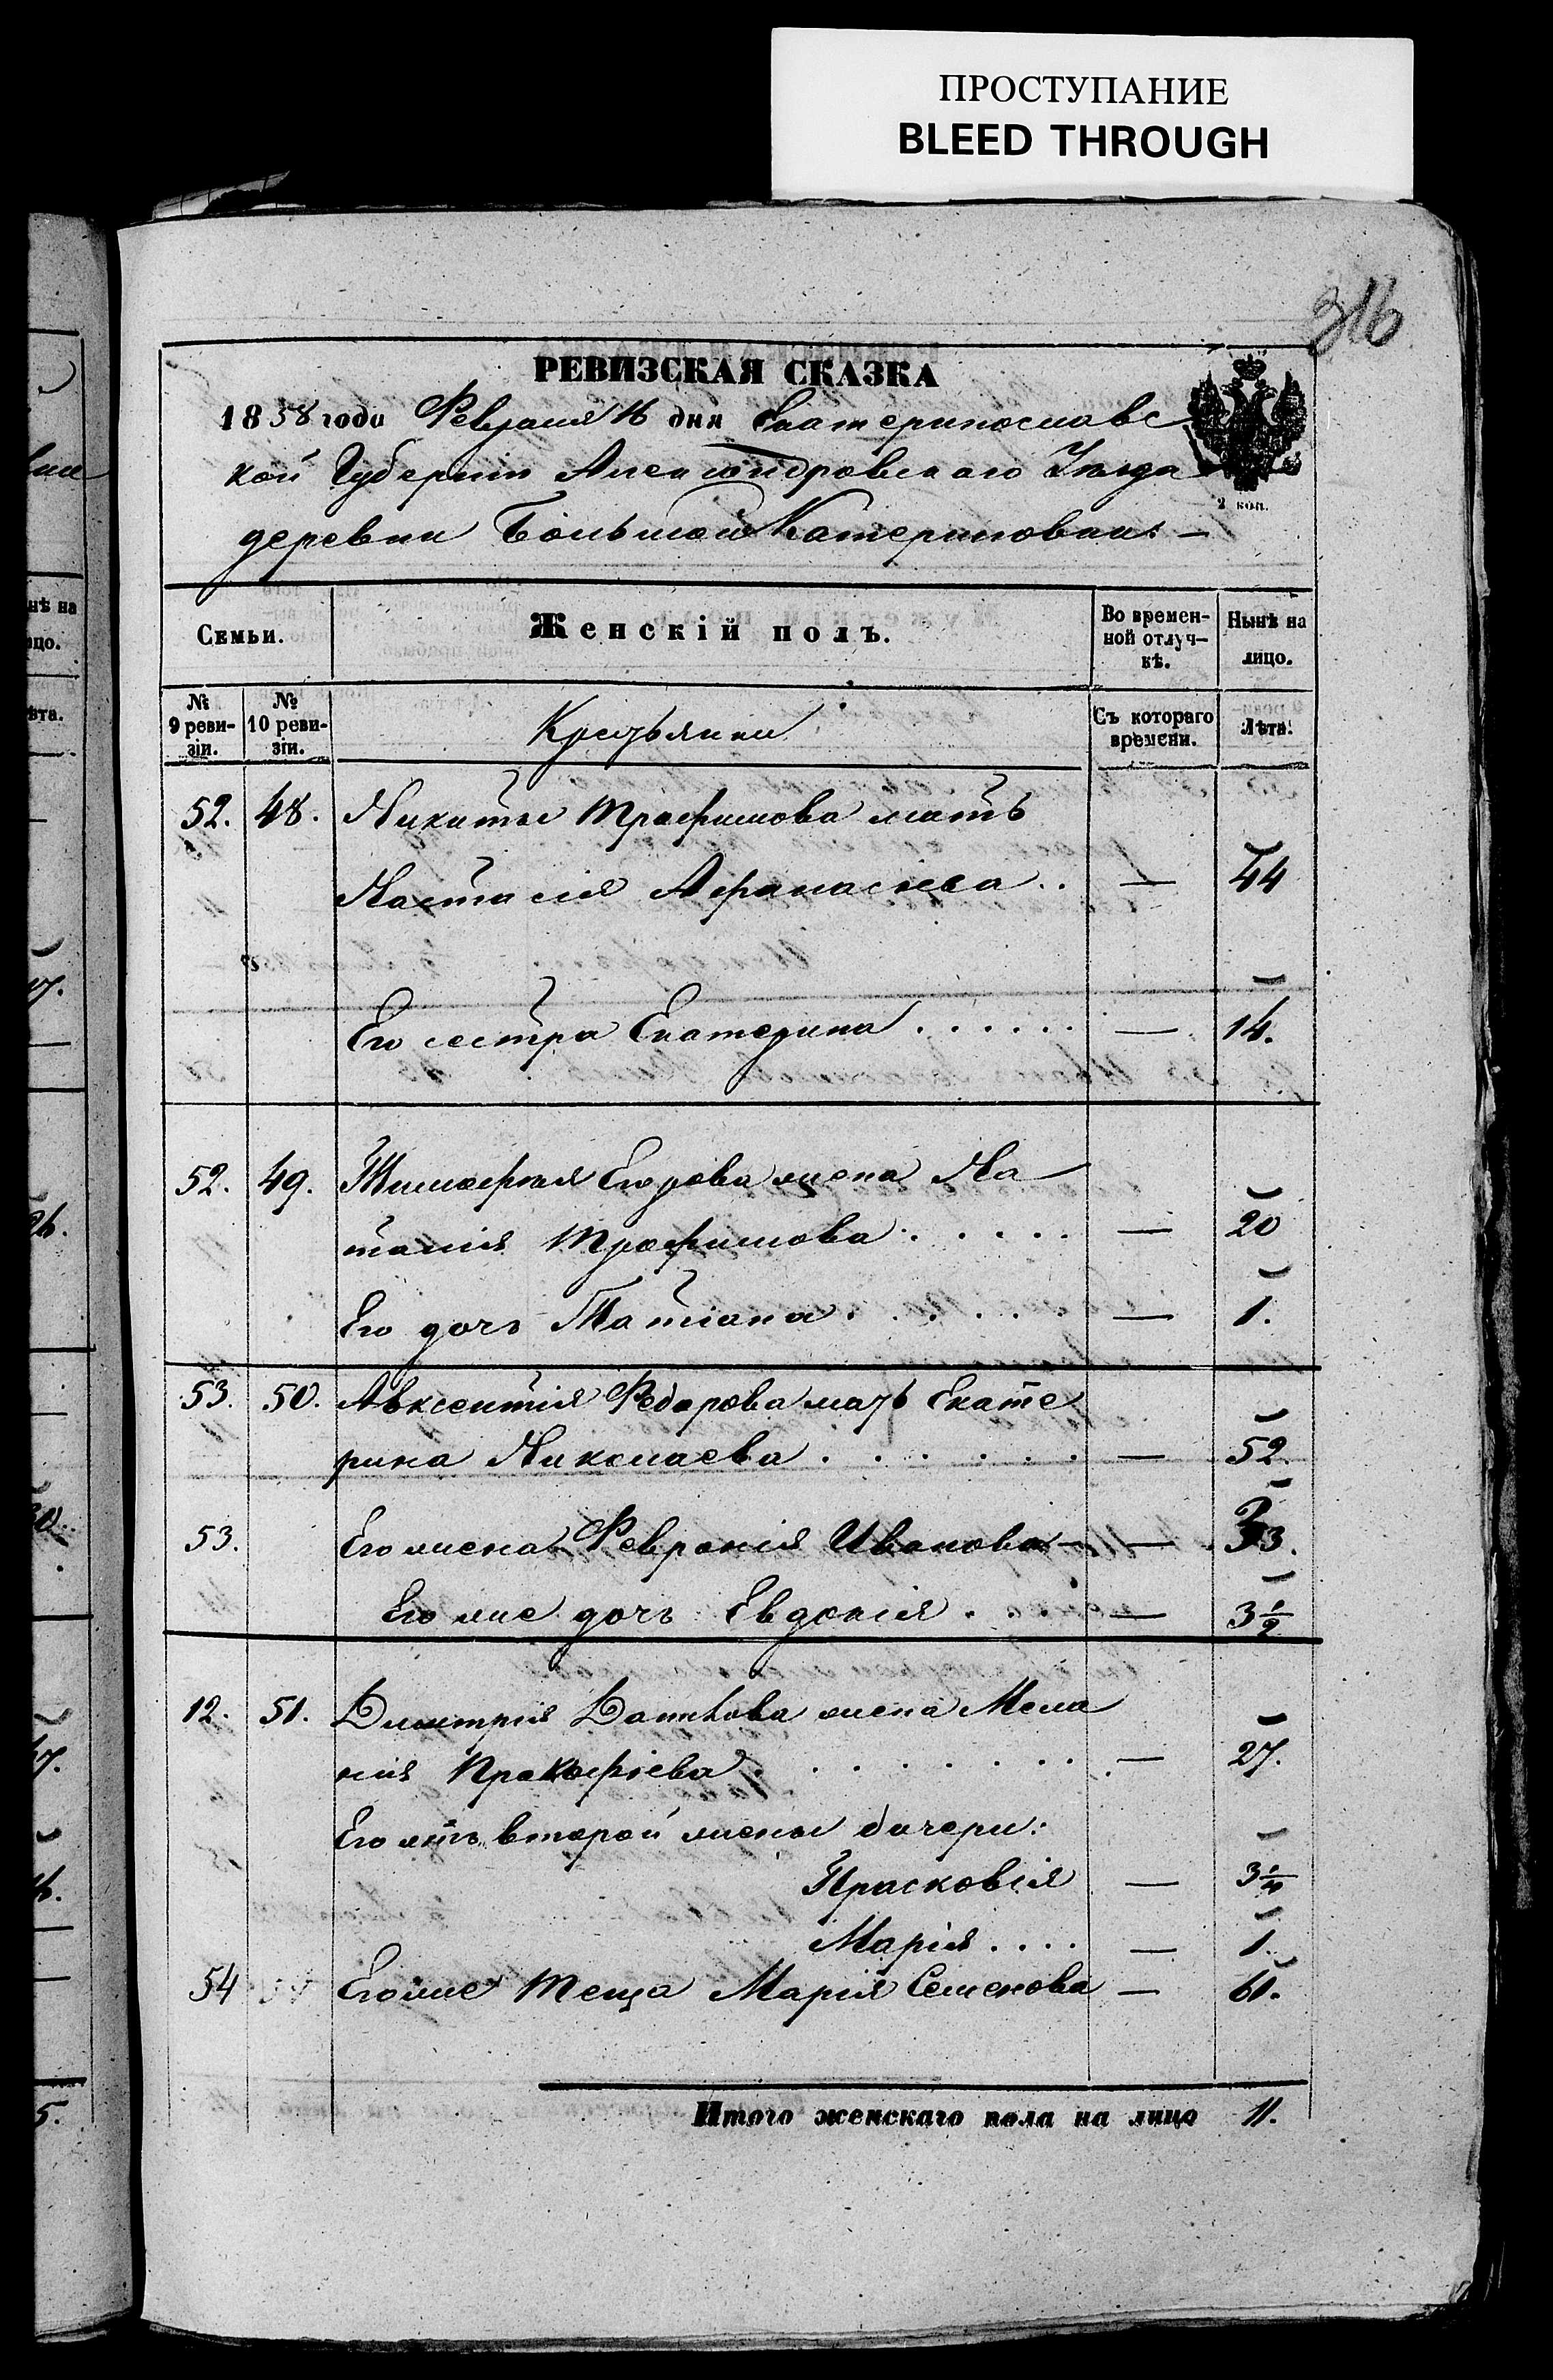 ПРОСТУПАНИЕ
BLEED THROUGH
316
РЕВИЗСКАЯ СКАЗКА
1858 года Февраля 16 дня Екатеринославс
кой Губерніи Александровскаго Уезда
2 коп.
деревни Большой Катериновки. —
Семьи. Женскій полъ. Во времен- Нынѣ на
ной отлуч- лицо.
кѣ.
№ № Крестьянки Съ котораго Лѣта.
9 реви- 10 реви- времени.
зіи. зіи.
52. 48. Никиты Трафимова мать
Настасія Афанасіева . . — 44
Его сестра Екатерина . . . . . . — 14.
52. 49. Тимофея Егорова жена На
талія Трофимова . . . . . — 20
Его дочь Татіана . . . . . . — 1.
53. 50. Авксентія Федорова мать Екате
рина Николаева . . . . . . — 52.
53. Его жена Февронія Иванова — — 33.
Его же дочь Евдокія . . . — 3 1/2
12. 51. Дмитрія жена Мела
нія Прокофіева . . . . . . . — 27.
Его отъ второй жены дочери:
Прасковія — 3 1/4
Марія . . . . — 1.
54 Его же теща Марія Семенова — 61.
Итого женскаго пола на лицо 11.